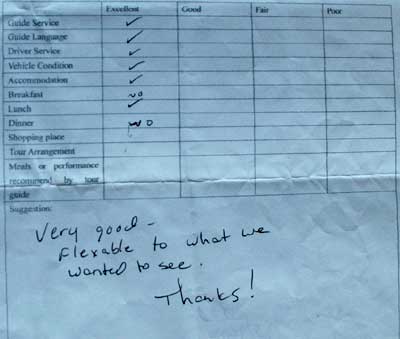 Excellent Good Fair Poor
Guide Service ✓
Guide Language ✓
Driver Service ✓
Vehicle Condition ✓
Accommodation ✓
Breakfast NO
Lunch ✓
Dinner NO
Shopping place
Tour Arrangement
Meals or performance
recommend by tour
guide
Suggestion:
Very good -
Flexable to what we
wanted to see.
Thanks!